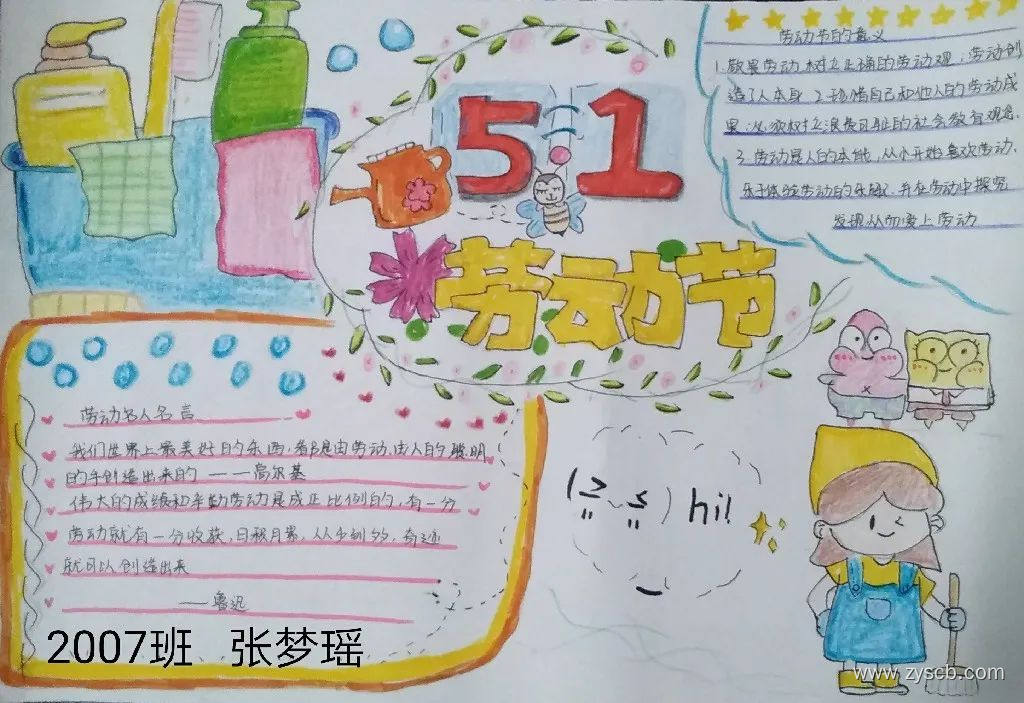 5 1
劳动节
劳动节的意义
1.敬畏劳动,树立正确的劳动观:劳动创
造了人本身 2.珍惜自己和他人的劳动成
果:必须树立浪费可耻的社会教育观念.
3.劳动是人的本能,从小开始喜欢劳动,
乐于体验劳动的乐趣.并在劳动中探究
发现从而爱上劳动
劳动名人名言
我们世界上最美好的东西,都是由劳动,由人的聪明
的手创造出来的 ———高尔基
伟大的成绩和辛勤劳动是成正比例的,有一分
劳动就有一分收获,日积月累,从少到多,奇迹
就可以创造出来
——鲁迅
hi!
2007班 张梦瑶
www.zyscb.com